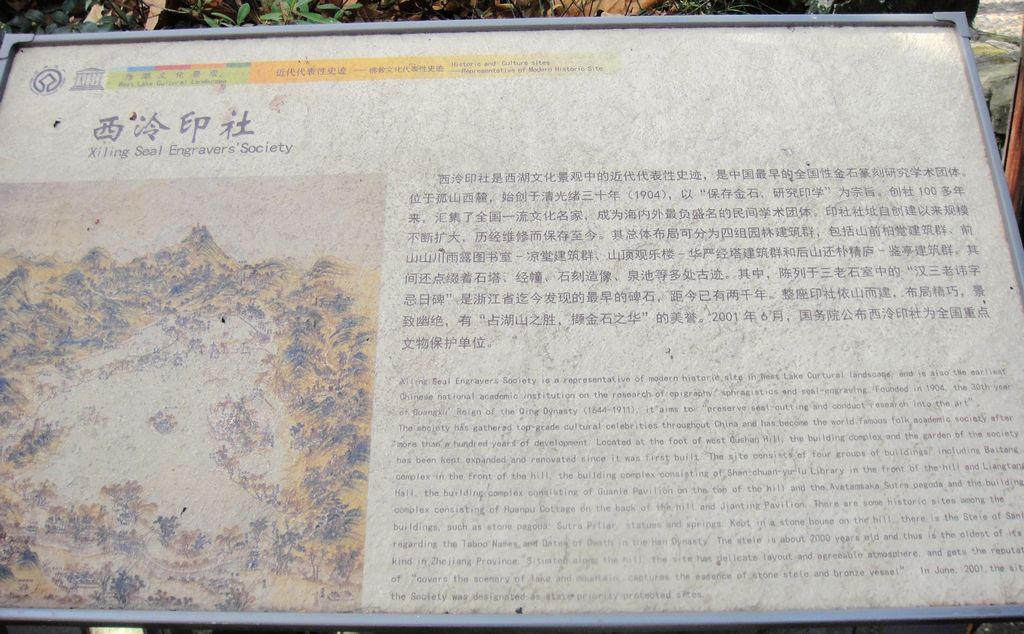 西湖文化景观
West Lake Cultural Landscape
近代代表性史迹 —— 佛教文化代表性史迹
Historic and Culture sites
——Representative of Modern Historic Site
西泠印社
Xiling Seal Engravers'Society
西泠印社是西湖文化景观中的近代代表性史迹，是中国最早的全国性金石篆刻研究学术团体。
位于孤山西麓，始创于清光绪三十年（1904），以“保存金石、研究印学”为宗旨。创社 100 多年
来，汇集了全国一流文化名家，成为海内外最负盛名的民间学术团体。印社社址自创建以来规模
不断扩大，历经维修而保存至今。其总体布局可分为四组园林建筑群，包括山前柏堂建筑群、前
山山川雨露图书室－凉堂建筑群、山顶观乐楼－华严经塔建筑群和后山还朴精庐－鉴亭建筑群。其
间还点缀着石塔、经幢、石刻造像、泉池等多处古迹。其中，陈列于三老石室中的“汉三老讳字
忌日碑”是浙江省迄今发现的最早的碑石，距今已有两千年。整座印社依山而建，布局精巧，景
致幽绝，有“占湖山之胜，撷金石之华”的美誉。2001 年 6 月，国务院公布西泠印社为全国重点
文物保护单位。
Xiling Seal Engravers Society is a representative of modern historic site in West Lake Curtural landscape, and is also the earliest
Chinese national academic institution on the research of epigraphy, sphragistics and seal-engraving. Founded in 1904, the 30th year
of Guangxu' Reign of the Qing Dynasty (1644-1911), it aims to "preserve seal-cutting and conduct research into the art".
The society has gathered top-grade cultural celebrities throughout China and has become the world-famous folk academic society after
more than a hundred years of development. Located at the foot of west Gushan Hill, the building complex and the garden of the society
has been kept expanded and renovated since it was first built. The site consists of four groups of buildings, including Baitang
complex in the front of the hill, the building complex consisting of Shan-chuan-yu-lu Library in the front of the hill and Liangtang
Hall, the building complex consisting of Guanle Pavilion on the top of the hill and the Avatamsaka Sutra pagoda and the building
complex consisting of Huanpu Cottage on the back of the hill and Jianting Pavilion. There are some historic sites among the
buildings, such as stone pagoda, Sutra Pillar, statues and springs. Kept in a stone house on the hill, there is the Stele of
regarding the Taboo Names and Dates of Death in the Han Dynasty. The stele is about 2000 years old and thus is the oldest of its
kind in Zhejiang Province. Situated along the hill, the site has delicate layout and agreeable atmosphere, and gets the
of "covers the scenery of lake and mountain, captures the essence of stone stele and bronze vessel". In June, 2001, the
the Society was designated as state priority protected sites.